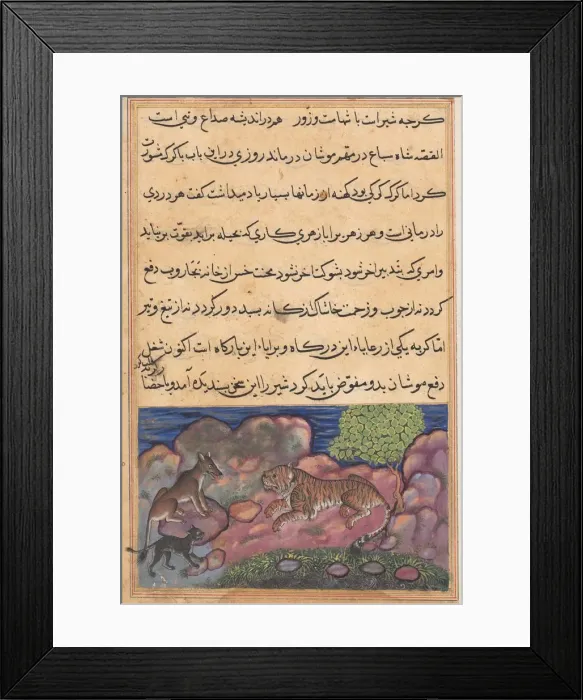 کرچه شیر است با شهامت و زور هر دو اندیشه صداع و تبی است
القصه شاه سباع در مهم موشان درماند روزی در این باب با کرک مشورت
کرد اما کرک کرکی بود کهنه از زمانها بسیار یاد میداشت کفت هر دردی
را درمانی است و هر زهر برا بازهری کاری که بحیله براید بقوت برنیاید
وامری که بتدبیر اخر شود بشوکت اخر نشود محنت خس از خانه بجاروب دفع
کردد نه از چوب و زحمت خاشاک از کانه بسبد دور کردد نه از تیغ و تیر
اما کربه یکی از رعایاء این درکاه و برایاء این بارکاه است اکنون شغل
دفع موشان بدو مفوض باید کرد شیر را این سخن پسندیده آمد و باحضار